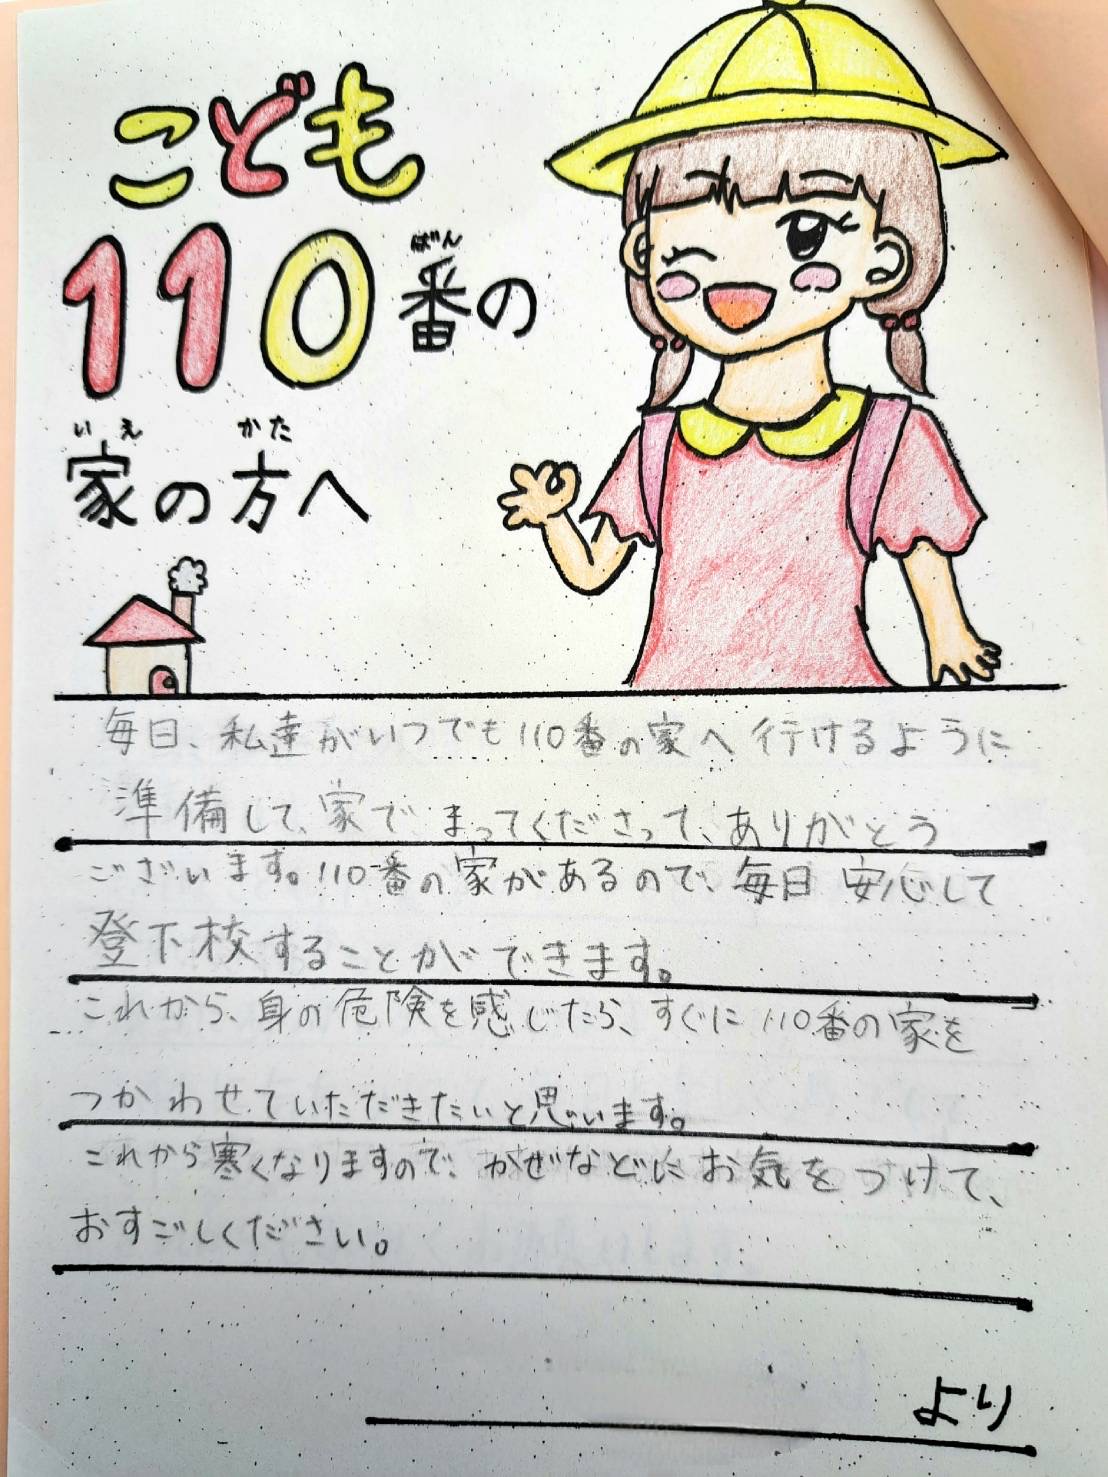 こども
110番の
ばん
家の方へ
いえ かた
毎日、私達がいつでも110番の家へ行けるように
準備して、家でまってくださって、ありがとう
ございます。110番の家があるので、毎日安心して
登下校することができます。
これから、身の危険を感じたら、すぐに110番の家を
つかわせていただきたいと思います。
これから寒くなりますので、かぜなどにお気をつけて、
おすごしください。
より